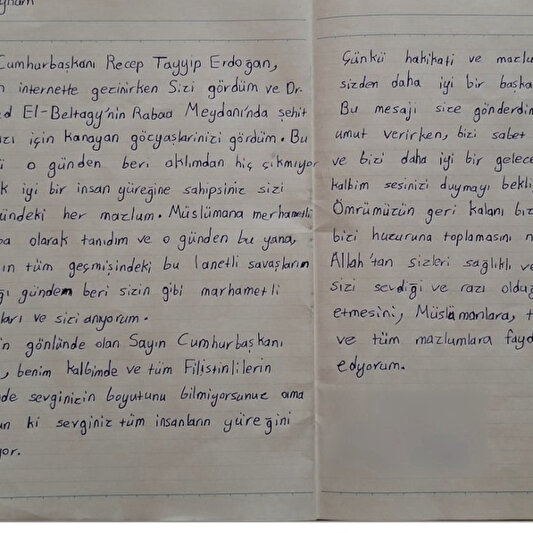 Cumhurbaşkanı Recep Tayyip Erdoğan,
internette gezinirken Sizi gördüm ve Dr.
El-Beltagy'nin Rabaa Meydanı'nda şehit
için kanayan göcyaşlarinizi gördüm. Bu
o günden beri aklımdan hiç çıkmıyor
iyi bir insan yüreğine sahipsiniz sizi
her mazlum. Müslümana merhametli
olarak tanıdım ve o günden bu yana,
tüm geçmişindeki bu lanetli savaşların
gündem beri sizin gibi marhametli
ve sizi anıyorum.
gönlünde olan Sayın Cumhurbaşkanı
, benim kalbimde ve tüm Filistinlilerin
sevginizin boyutunu bilmiyorsunuz ama
ki sevginiz tüm insanların yüreğini
Günkü hakikati ve mazlu
sizden daha iyi bir başka
Bu mesajı size gönderdim
umut verirken, bizi sabet
ve bizi daha iyi bir gelece
kalbim sesinizi duymayı bekli
Ömrümüzün geri kalanı biz
bizi huzuruna toplamasını n
Allah'tan sizleri sağlıklı ve
sizi sevdiği ve razı olduğ
etmesini, Müslümanlara, t
ve tüm mazlumlara fayd
edyorum.